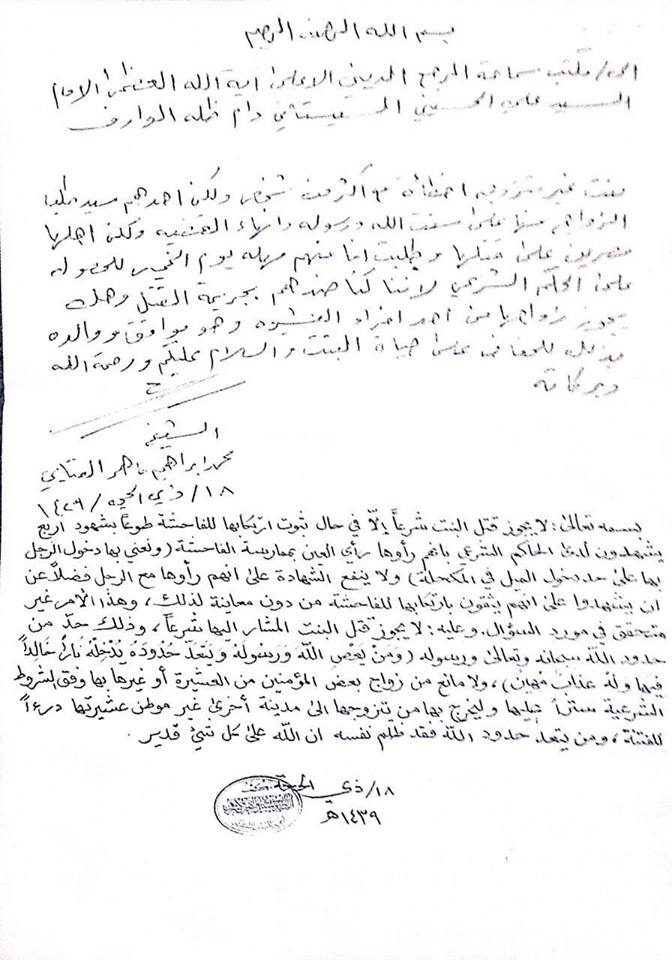 بسم الله الرحمن الرحيم
الى / مكتب سماحة المرجع الديني الاعلى اية الله العظمى الامام
السيد علي الحسيني السيستاني دام ظله الوارف
بنت غير متزوجه اخطائة مع اكثر من شخص ولكن احدهم سيد يطلب
الزواج منها على سنت الله ورسوله وانهاء القضيه ولكن اهلها
مصرين على قتلها وطلبت انا منهم مهله يوم الخميس للحصول
على الحكم الشرعي لاننا كنا ضدهم بجريمة القتل وهل
يجوز زواجها من احد افراد العشيره وهو موافق ووالده
بذلك للحفاض على حياة البنت والسلام عليكم ورحمة الله
وبركاتة
الشيخ
محمد ابراهيم
١٨ / ذي الحجه / ١٤٣٩
بسمه تعالى: لا يجوز قتل البنت شرعاً إلّا في حال ثبوت ارتكابها للفاحشة طوعاً بشهود اربع
يشهدون لدى الحاكم الشرعي بانهم رأوها رأي العين بممارسة الفاحشة (ونعني بها دخول الرجل
بها على حد دخول الميل في المكحلة) ولا ينفع الشهادة على انهم رأوها مع الرجل فضلاً عن
ان يشهدوا على انهم يثقون بارتكابها للفاحشة من دون معاينة لذلك، وهذا الأمر غير
متحقق في مورد السؤال. وعليه: لا يجوز قتل البنت المشار اليها شرعاً، وذلك حدّ من
حدود الله سبحانه وتعالى ورسوله (وَمَنْ يَعْصِ اللّهَ وَرَسُولَهُ وَيَتَعَدَّ حُدُودَهُ يُدْخِلْهُ نَاراً خَالِداً
فيها وله عذاب مهين)، ولا مانع من زواج بعض المؤمنين من العشيرة أو غيرها بها وفق الشروط
الشرعية ستراً عليها وليخرج بها من تزوجها الى مدينة أخرى غير موطن عشيرتها درءاً
للفتنة، ومن يتعد حدود الله فقد ظلم نفسه ان الله على كل شيء قدير.
١٨/ ذي الحجة
١٤٣٩هـ